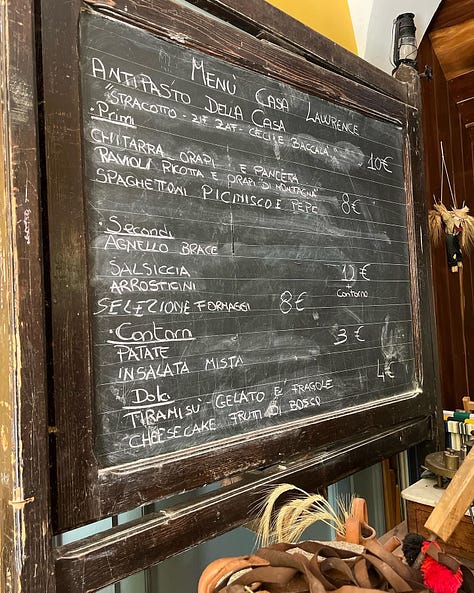 MENÙ CASA LAWRENCE
ANTIPASTO DELLA CASA
"STRACOTTO - ZIF ZAF - CECI E BACCALÀ" 10€
• Primi
CHITARRA ORAPI E PANCETA
RAVIOLI RICOTTA E ORAPI "DI MONTAGNA"
SPAGHETTONI PICINISCO E PEPE 8€
• Secondi
AGNELLO BRACE
SALSICCIA 12€
ARROSTICINI + Contorno
SELEZIONE FORMAGGI 8€
• Contorni
PATATE 3€
INSALATA MISTA
Dolci 4€
TIRAMISÙ GELATO E FRAGOLE
"CHEESECAKE FRUTTI DI BOSCO